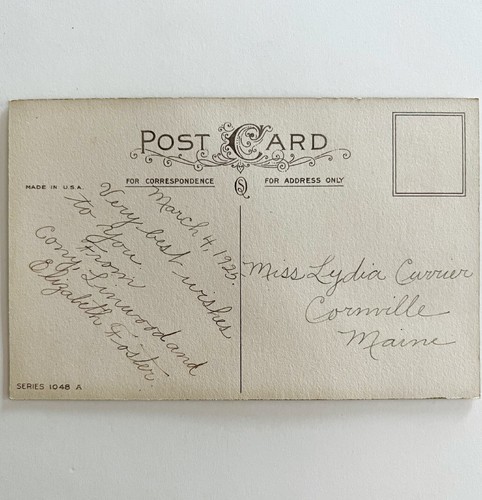 POST CARD
FOR CORRESPONDENCE
FOR ADDRESS ONLY
MADE IN U.S.A.
March 4, 1925.
Very best wishes
to you
From
Cony, Linwood and
Elizabeth Foster.
Miss Lydia Currier
Cornville
Maine
SERIES 1048 A